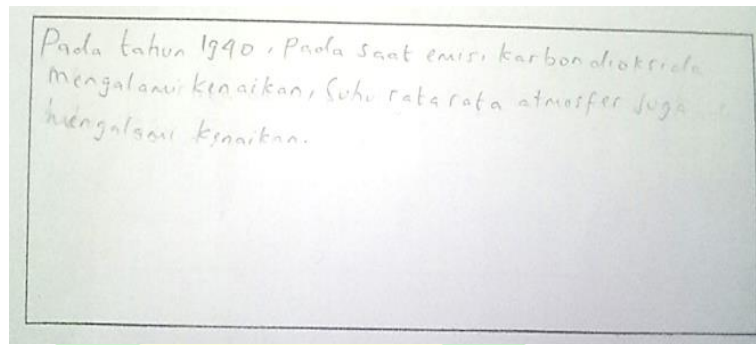 Pada tahun 1940, Pada Saat emisi karbondioksida
Mengalami kenaikan, Suhu rata rata atmosfer Juga
mengalami kenaikan.